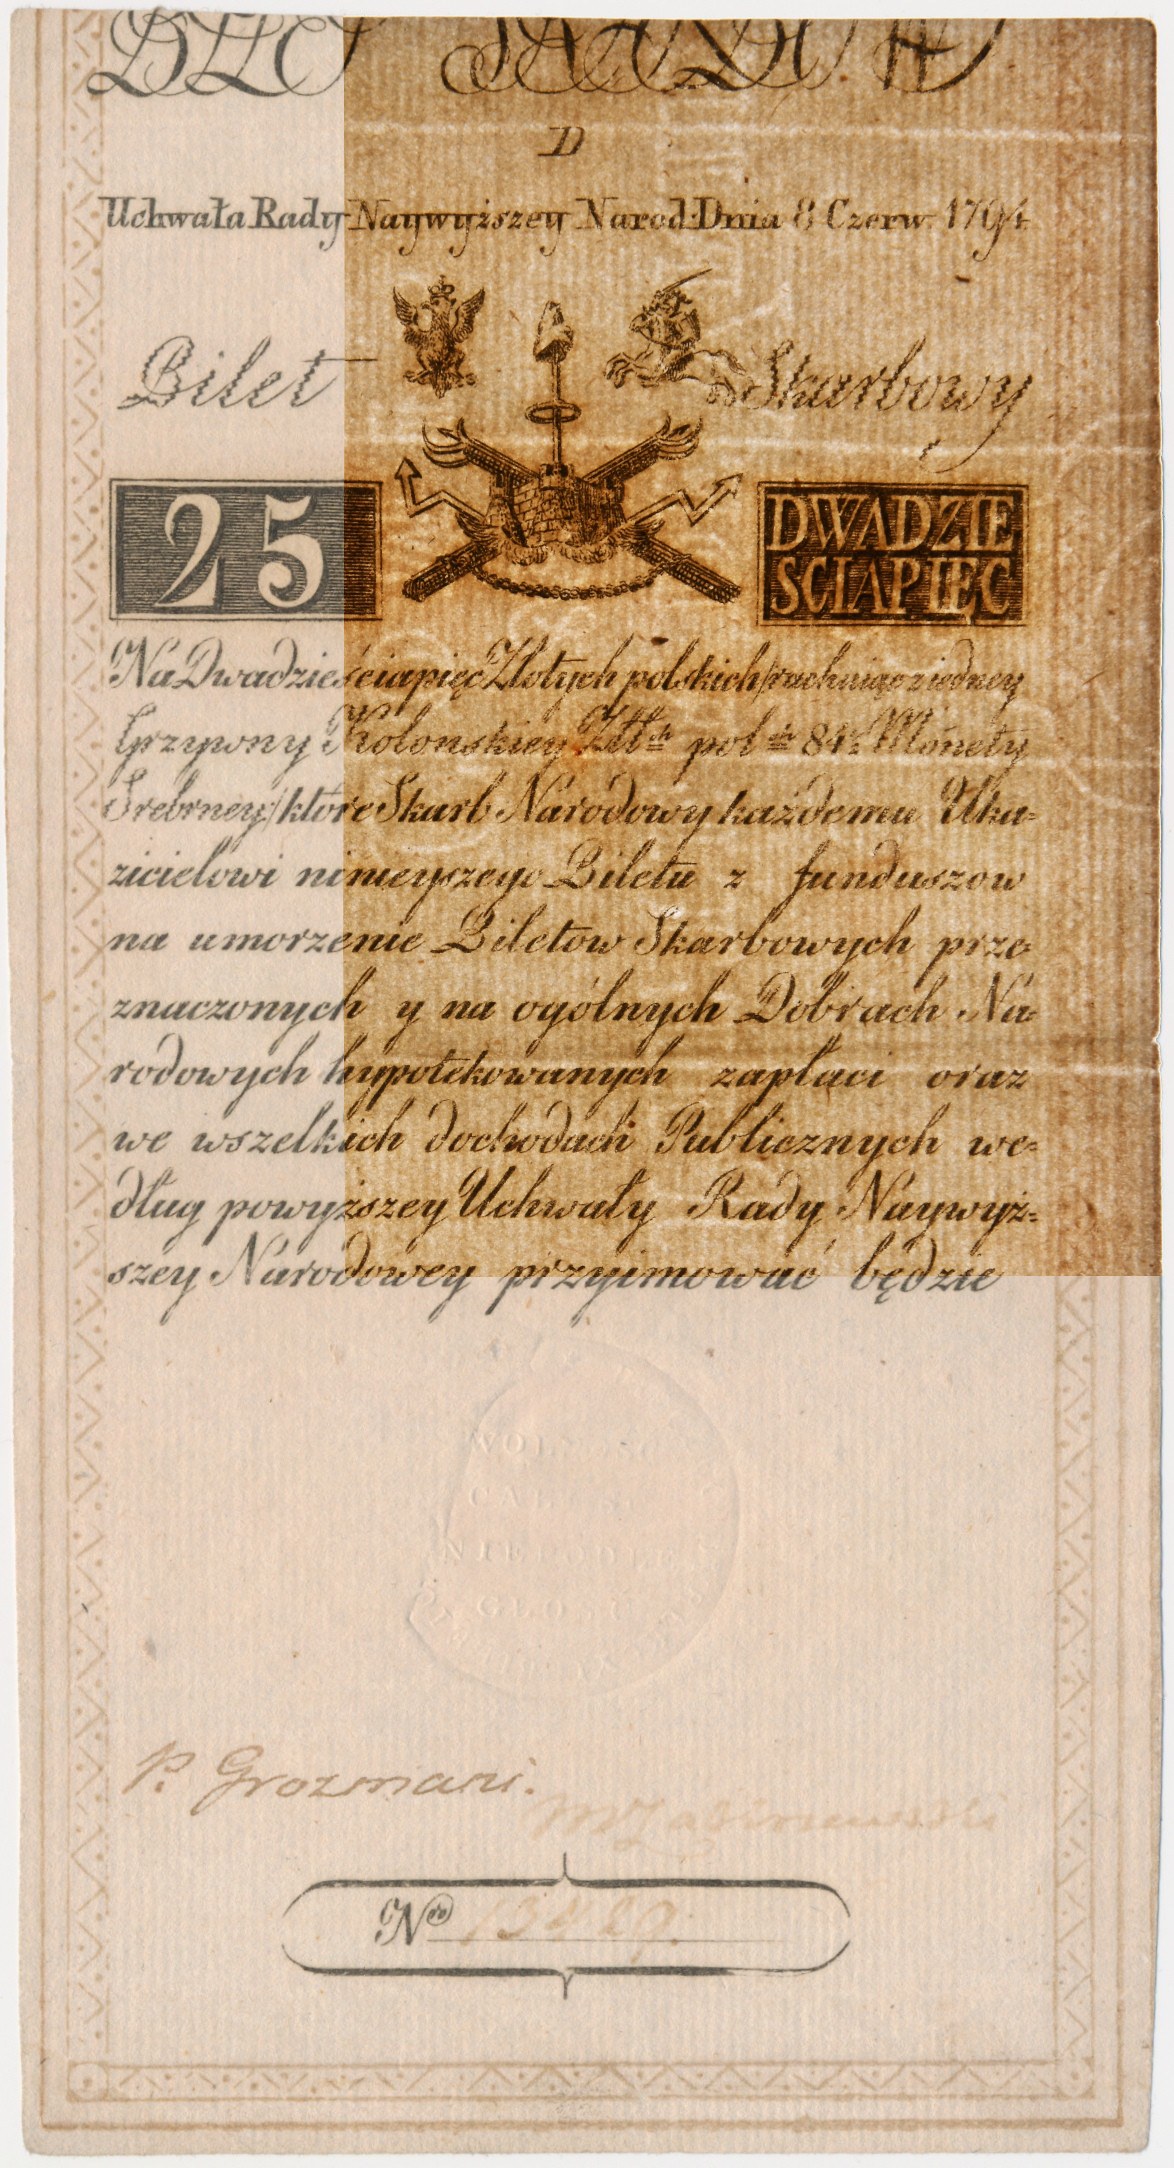 D
Uchwała Rady Naywyższey Narod: Dnia 8 Czerw. 1794
Bilet Skarbowy
25 DWADZIE
SCIAPIĘC
Na Dwadzieściapięc Złotych polskich/rachuiąc z iedney
Grzywny Kolonskiey Złł.ch pol.ch 84½ Monety
Srebrney/które Skarb Narodowy każdemu Uka=
zicielowi ninieyszego Biletu z funduszow
na umorzenie Biletow Skarbowych prze=
znaczonych y na ogólnych Dobrach Na=
rodowych hypotekowanych zapłaci oraz
we wszelkich dochodach Publicznych we=
dług powyższey Uchwały Rady Naywyż=
szey Narodowey przyimować będzie
WOLNOSC
CAŁOSC
NIEPODLE
GŁOSC
P. Grozmani.
N.ro